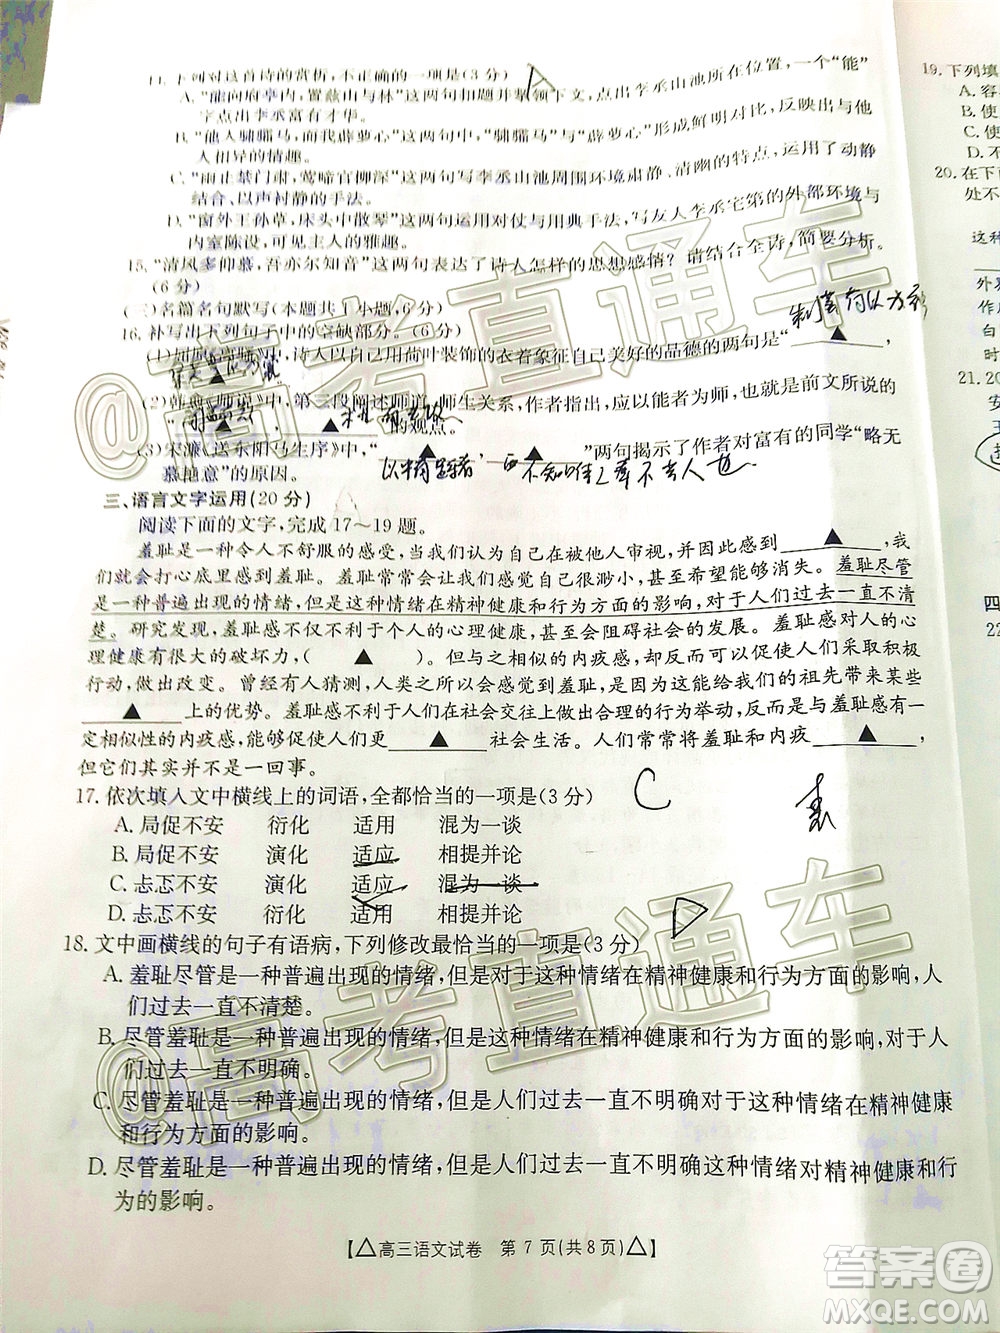 14. 下列对这首诗的赏析,不正确的一项是(3分)
A. “能向府亭内,置兹山与林”这两句扣题并掌领下文,点出李丞山池所在位置,一个“能”
字点出李丞富有才华。
B. “他人骕骦马,而我薜萝心”这两句中,“骕骦马”与“薜萝心”形成鲜明对比,写出与他
人相异的情趣。
C. “雨止禁门肃,莺啼官柳深”这两句写李丞山池周围环境肃静、清幽的特点,运用了动静
结合、以声衬静的手法。
D. “窗外王孙草,床头中散琴”这两句运用对仗与用典手法,写友人李丞宅第的外部环境与
内室陈设,可见主人的雅趣。
15. “清风多仰慕,吾亦尔知音”这两句表达了诗人怎样的思想感情?请结合全诗,简要分析。
(6分)
(三)名篇名句默写(本题共1小题,6分)
16. 补写出下列句子中的空缺部分。(6分)
(1)屈原《离骚》中,诗人用以荷叶装饰的衣着象征自己美好的品德的两句是“ ▲ ,
▲ ”。
(2)韩愈《师说》中,第三段阐述师道、师生关系,作者指出,应以能者为师,就是前文所说的
“ ▲ , ▲ ”的观点。
(3)宋濂《送东阳马生序》中,“ ▲ , ▲ ”两句揭示了作者对富有的同学“略无
慕艳意”的原因。
三、语言文字运用(20分)
阅读下面的文字,完成17~19题。
羞耻是一种令人不舒服的感受,当我们犯了错误并因此被他人审视,并因此感到 ▲ ,我
们就会打心底里感到羞耻。羞耻常常会让我们感觉自己很渺小,甚至希望能够消失。羞耻尽管
是一种普遍出现的情绪,但是这种情绪在精神健康和行为方面的影响,对于人们过去一直不清
楚。研究发现,羞耻感不仅不利于个人的心理健康,甚至会阻碍社会的发展。羞耻感对人的心
理健康有很大的破坏力,( ▲ )。但是,与羞耻感相似的内疚感,却常常能促进人们采取积极
行动,做出改变。曾经有人猜测,人类之所以会感到羞耻,是因为这种情绪让我们的祖先带来某些
▲ 上的优势。羞耻感不利于人们在社会交往上做出合理的行为举动,反而是与羞耻感有一
定相似性的内疚感,能够促使人们更 ▲ 社会生活。人们常常将羞耻和内疚 ▲ ,
但它们其实并不是一回事。
17. 依次填入文中横线上的词语,全都恰当的一项是(3分)
A. 局促不安 衍化 适用 混为一谈
B. 局促不安 演化 适应 相提并论
C. 忐忑不安 演化 适应 混为一谈
D. 忐忑不安 衍化 适用 相提并论
18. 文中画横线的句子有语病,下列修改最恰当的一项是(3分)
A. 羞耻尽管是一种普遍出现的情绪,但是关于这种情绪在精神健康和行为方面的影响,人
们过去一直不清楚。
B. 尽管羞耻是一种普遍出现的情绪,但是这种情绪在精神健康和行为方面的影响,对于人
们过去一直不明确。
C. 尽管羞耻是一种普遍出现的情绪,但人们过去一直不明确对于这种情绪在精神健康
和行为方面的影响。
D. 尽管羞耻是一种普遍出现的情绪,但是人们过去一直不清楚这种情绪对精神健康和行
为的影响。
【△高三语文试卷 第7页(共8页)△】
19. 下列填
A. 容
B. 使
C. 使
D. 不
20. 在下
处不
这种
外界
时
21. 20
安
四
22
C
@高考直通车
@高考直通车
答案圈
MXQE.COM